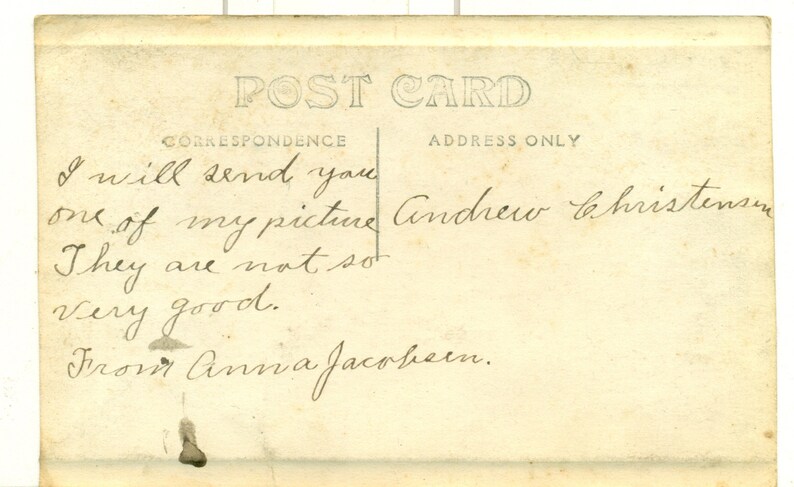 POST CARD
CORRESPONDENCE
ADDRESS ONLY
I will send you
one of my picture
They are not so
very good.
From Anna Jacobsen.
Andrew Christensen